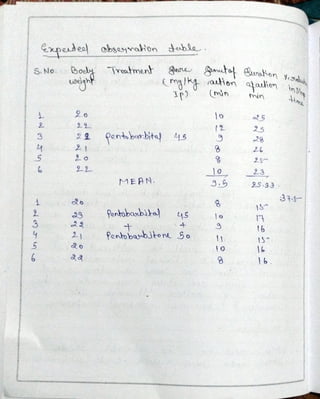 Expected observation table.
S.No. Body weight Treatment Dose (mg/kg I.P) Onset of action (min Duration of action min % reduction in sleep time
1 20 10 25
2 22 12 25
3 22 Pentobarbital 45 9 28
4 21 8 26
5 20 8 25
6 22 10 23
MEAN. 9.5 25.33
37.5
1 20 8 15
2 23 Pentobarbital 45 10 17
3 22 + + 9 16
4 21 Pentobarbitone 50 11 15
5 20 10 16
6 22 8 16